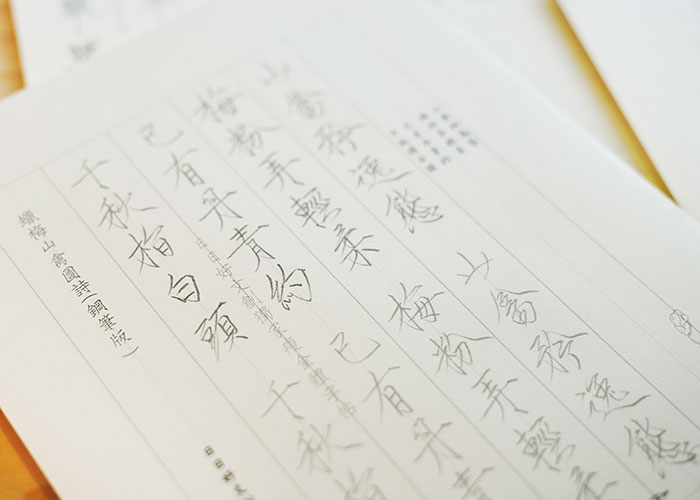 山禽矜逸態
梅粉弄輕柔
已有丹青約
千秋指白頭
山禽矜逸態
梅粉弄輕柔
已有丹青
千秋指
蠟梅山禽圖詩(鋼筆版)
日日好文